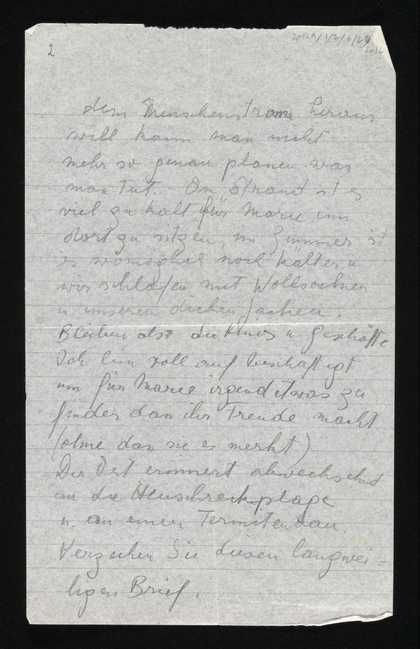 2
dem Menschenstrom heraus
will kann man nicht
mehr so genau planen was
man tut. Am Strand ist es
viel zu kalt für Marie um
dort zu sitzen, im Zimmer ist
es womöglich noch kälter u
wir schlafen mit Wollsachen
u unseren dicken Jacken.
Bleiben also die Kinos u Geschäfte
Ich bin voll auf beschäftigt
um für Marie irgend etwas zu
finden das ihr Freude macht
(ohne dass sie es merkt)
Der Ort erinnert abwechselnd
an die Heuschreckplage
u. an einen Termitenbau
Verzeihen Sie diesen langwei-
ligen Brief.